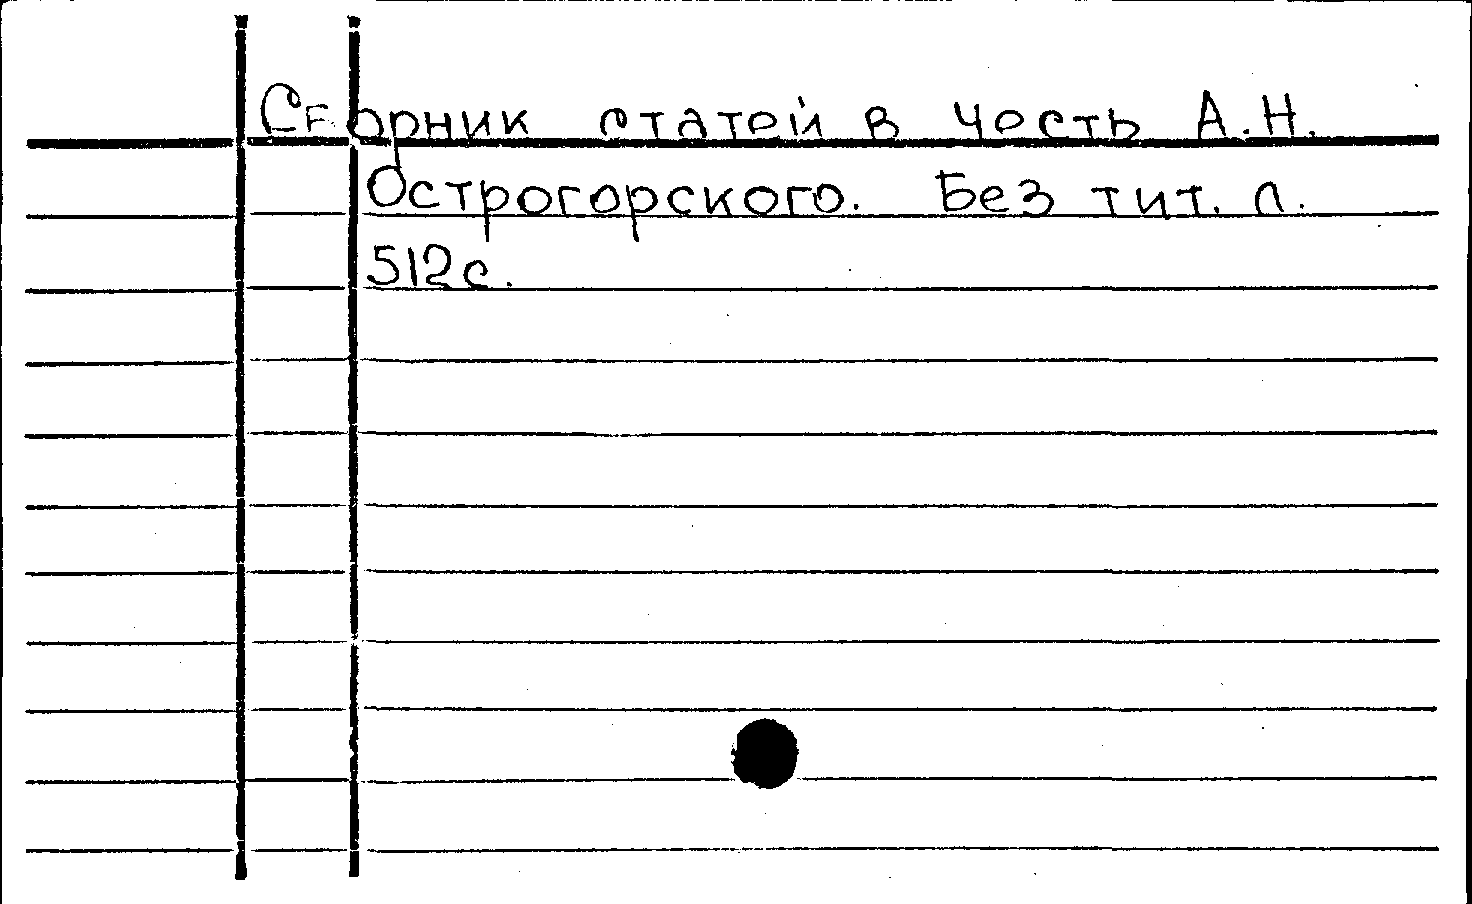 Сборник статей в честь А.Н.
Острогорского. Без тит. л.
512с.